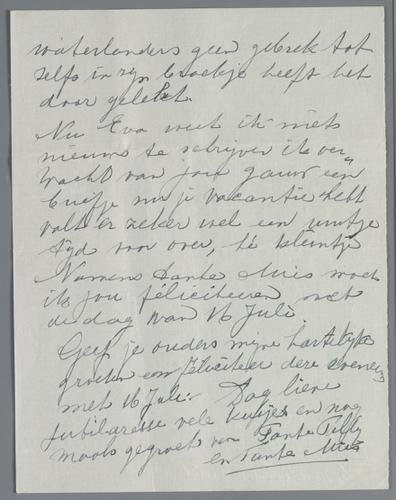 waterlanders geen gebrek tot
zelfs in zijn broekje heeft het
door gelekt.
Nu Eva weet ik niets
nieuws te schrijven ik ver-
wacht van jou gauw een
briefje nu je vacantie hebt
valt er zeker wel een uurtje
tijd voor over, hè kleintje
Namens Tante Mies moet
ik jou féliciteeren met
de dag van 16 Juli.
Geef je ouders mijne hartelijke
groeten en féliciteer dere eveneens
met 16 Juli. Dag lieve
Jubilaresse vele kusjes en nog
maals gegroet van Tante Tilly
en Tante Mies